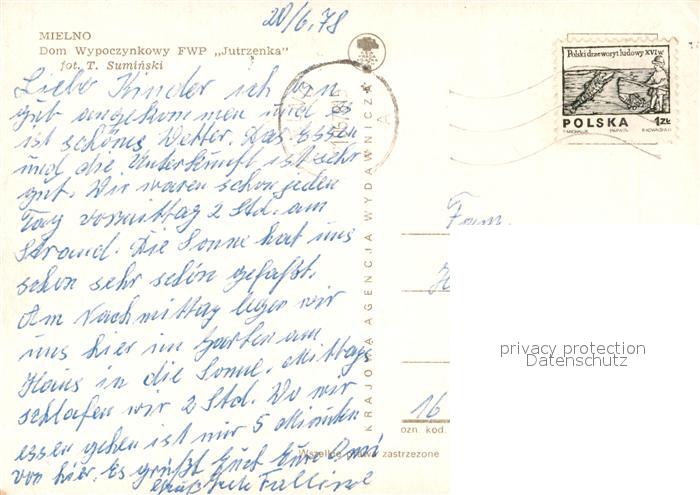 20/6.78
MIELNO
Dom Wypoczynkowy FWP „Jutrzenka"
fot. T. Sumiński
Liebe Kinder ich bin
gut angekommen und es
ist schönes Wetter. Das Essen
und die Unterkunft ist sehr
gut. Wir waren schon jeden
Tag vormittag 2 Std. am
Strand. Die Sonne hat uns
schon sehr schön gefaßt.
Am Nachmittag legen wir
uns hier im Garten am
Haus in die Sonne. Mittags
schlafen wir 2 Std. Wo wir
essen gehen ist nur 5 Minuten
von hier. Es grüßt Euch Eure Omi
KRAJOWA AGENCJA WYDAWNICZA
Polski drzeworyt ludowy XVI w.
POLSKA 1ZŁ
Fam.
16
ozn. kod.
Wszelkie prawa zastrzeżone
privacy protection
Datenschutz